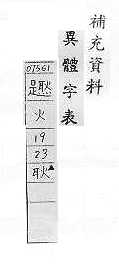 補充資料
異體字表
07561
火
19
23
耿▲